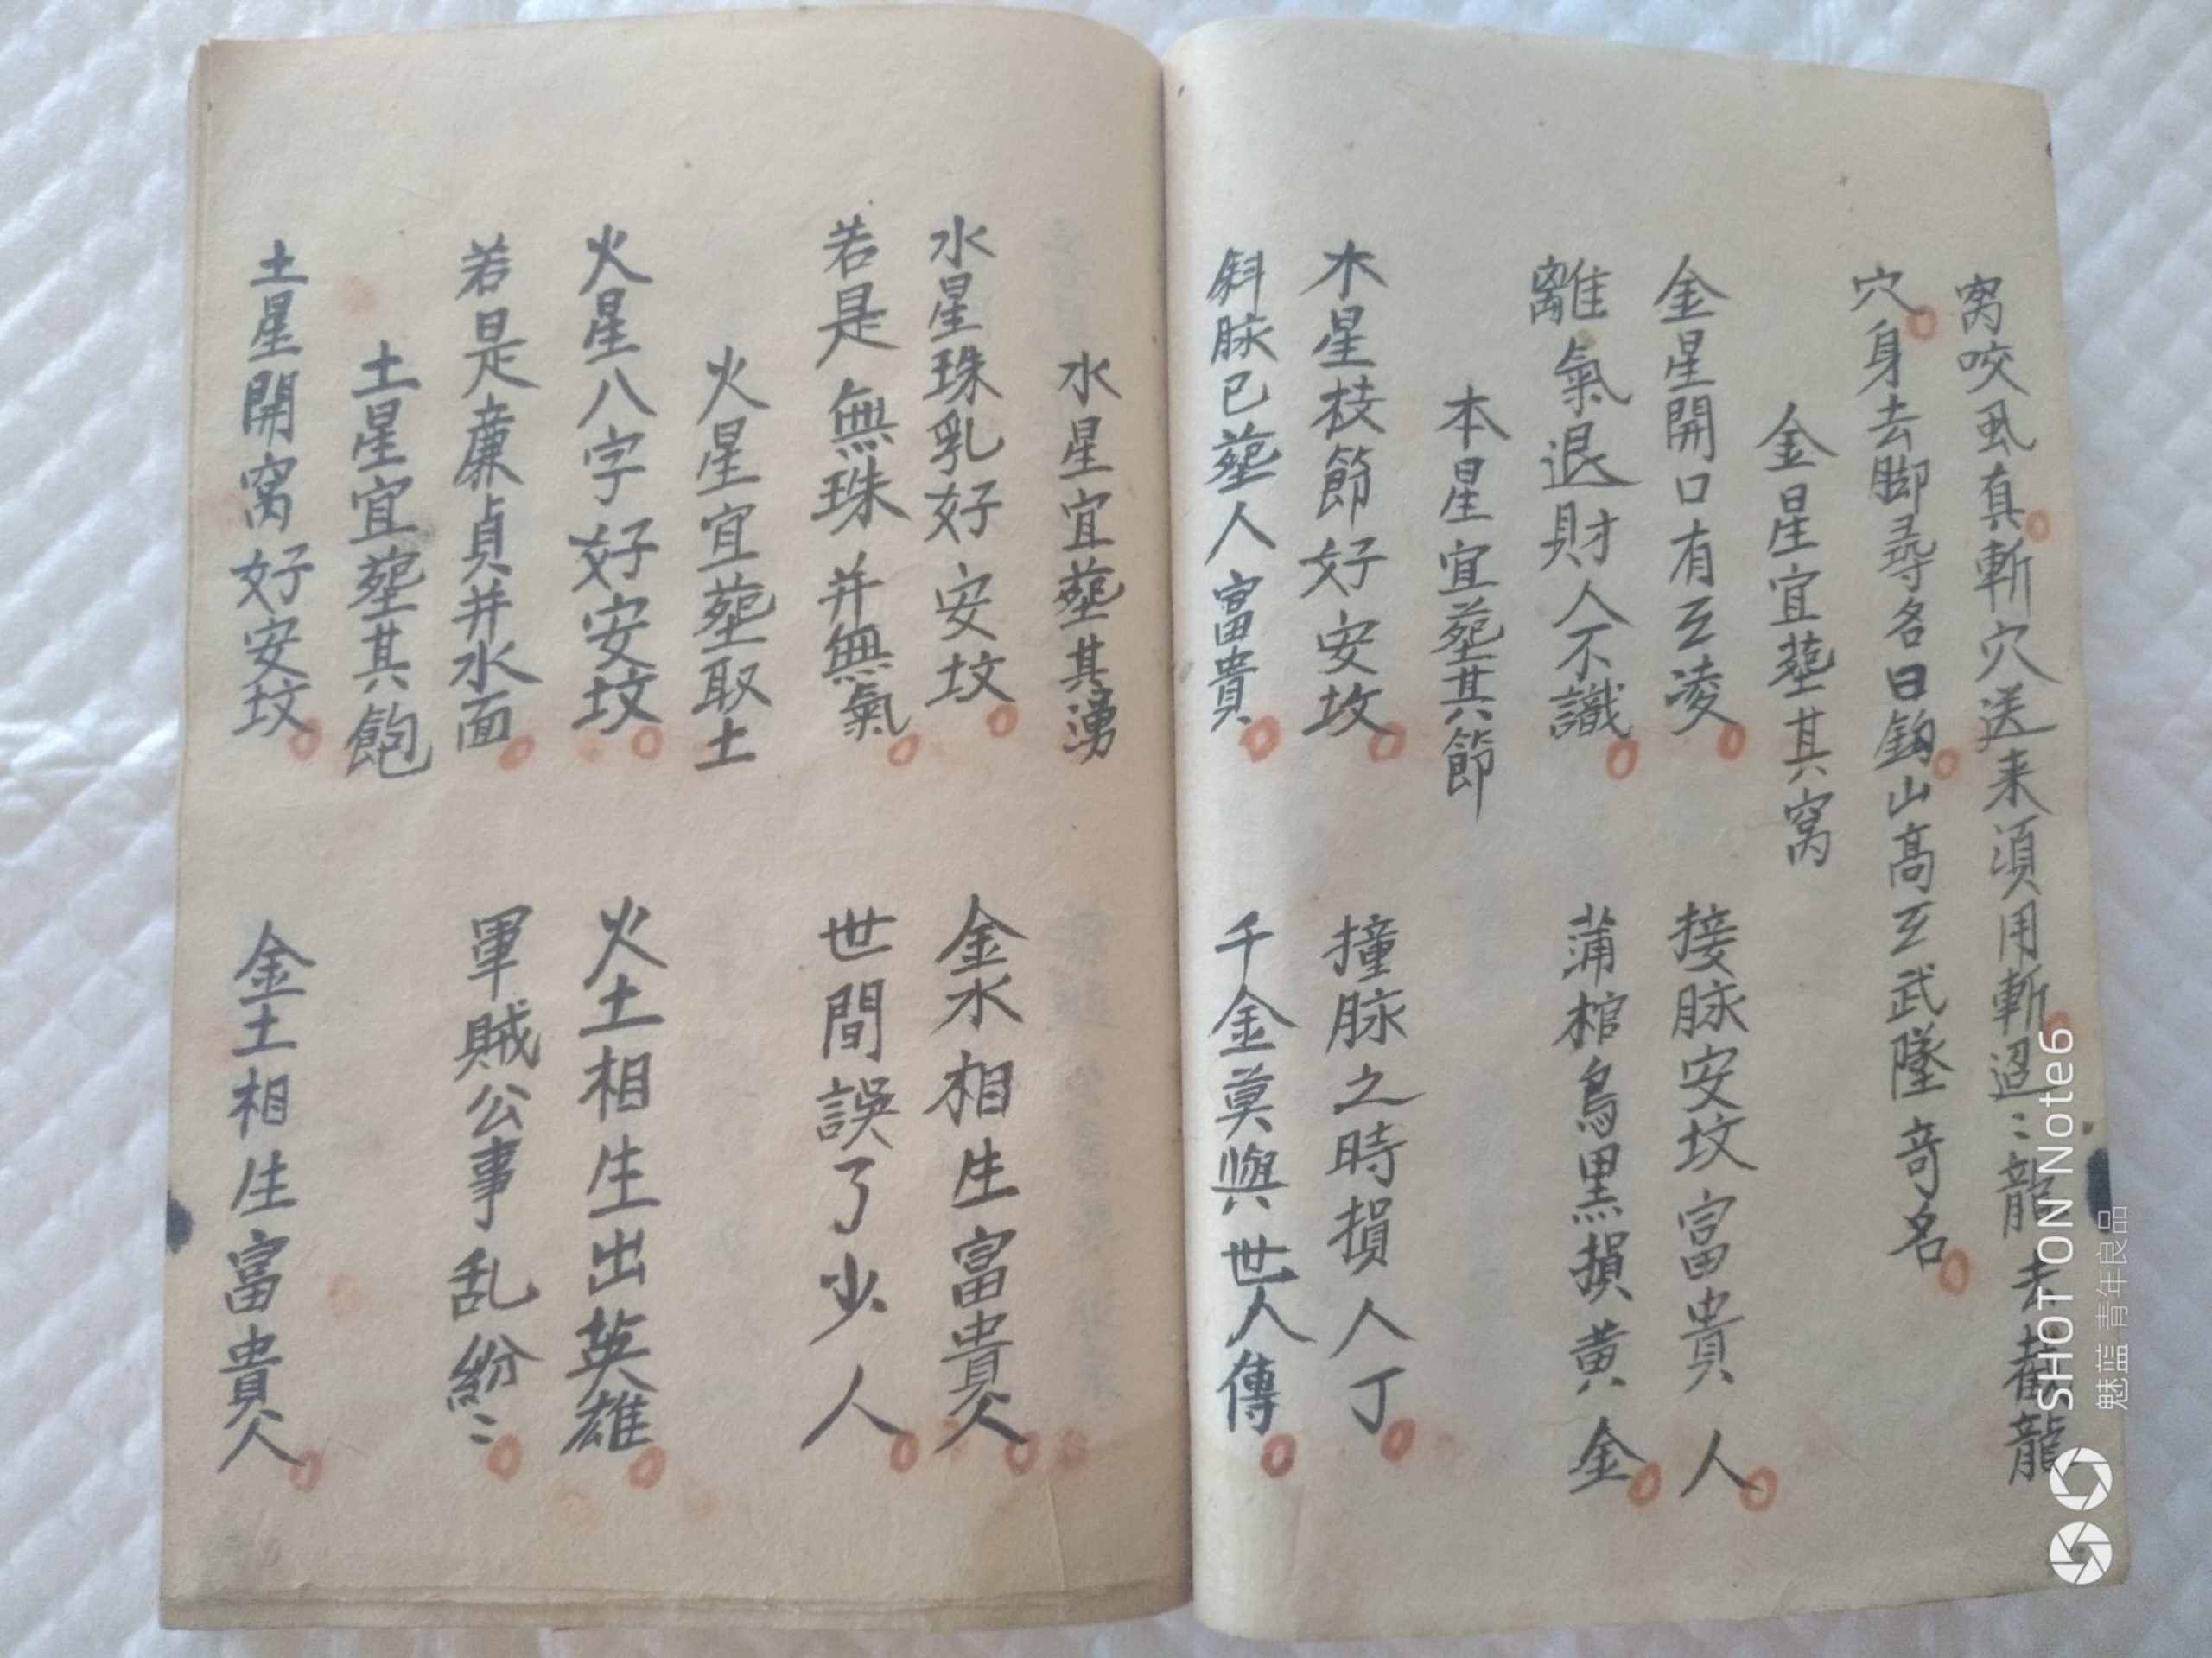 窝咬虱真斬穴送来須用斬迢〻龍去截龍
穴身去脚尋名曰鈎山高互武墜竒名
金星宜塟其窝
金星開口有互凌 接脉安坟富貴人
離氣退財人不識 蒲棺鳥黒損黄金
本星宜塟其節
木星枝節好安坟 撞脉之時損人丁
斜脉已塟人富貴 千金莫與世人傳
水星宜塟其湧
水星珠乳好安坟 金水相生富貴人
若是無珠并無氣 世間誤了少人
火星宜塟取土
火星八字好安坟 火土相生出英雄
若是廉貞并水面 軍賊公事乱紛〻
土星宜塟其飽
土星開窝好安坟 金土相生富貴人
SHOT ON Note6
魅蓝 青年良品